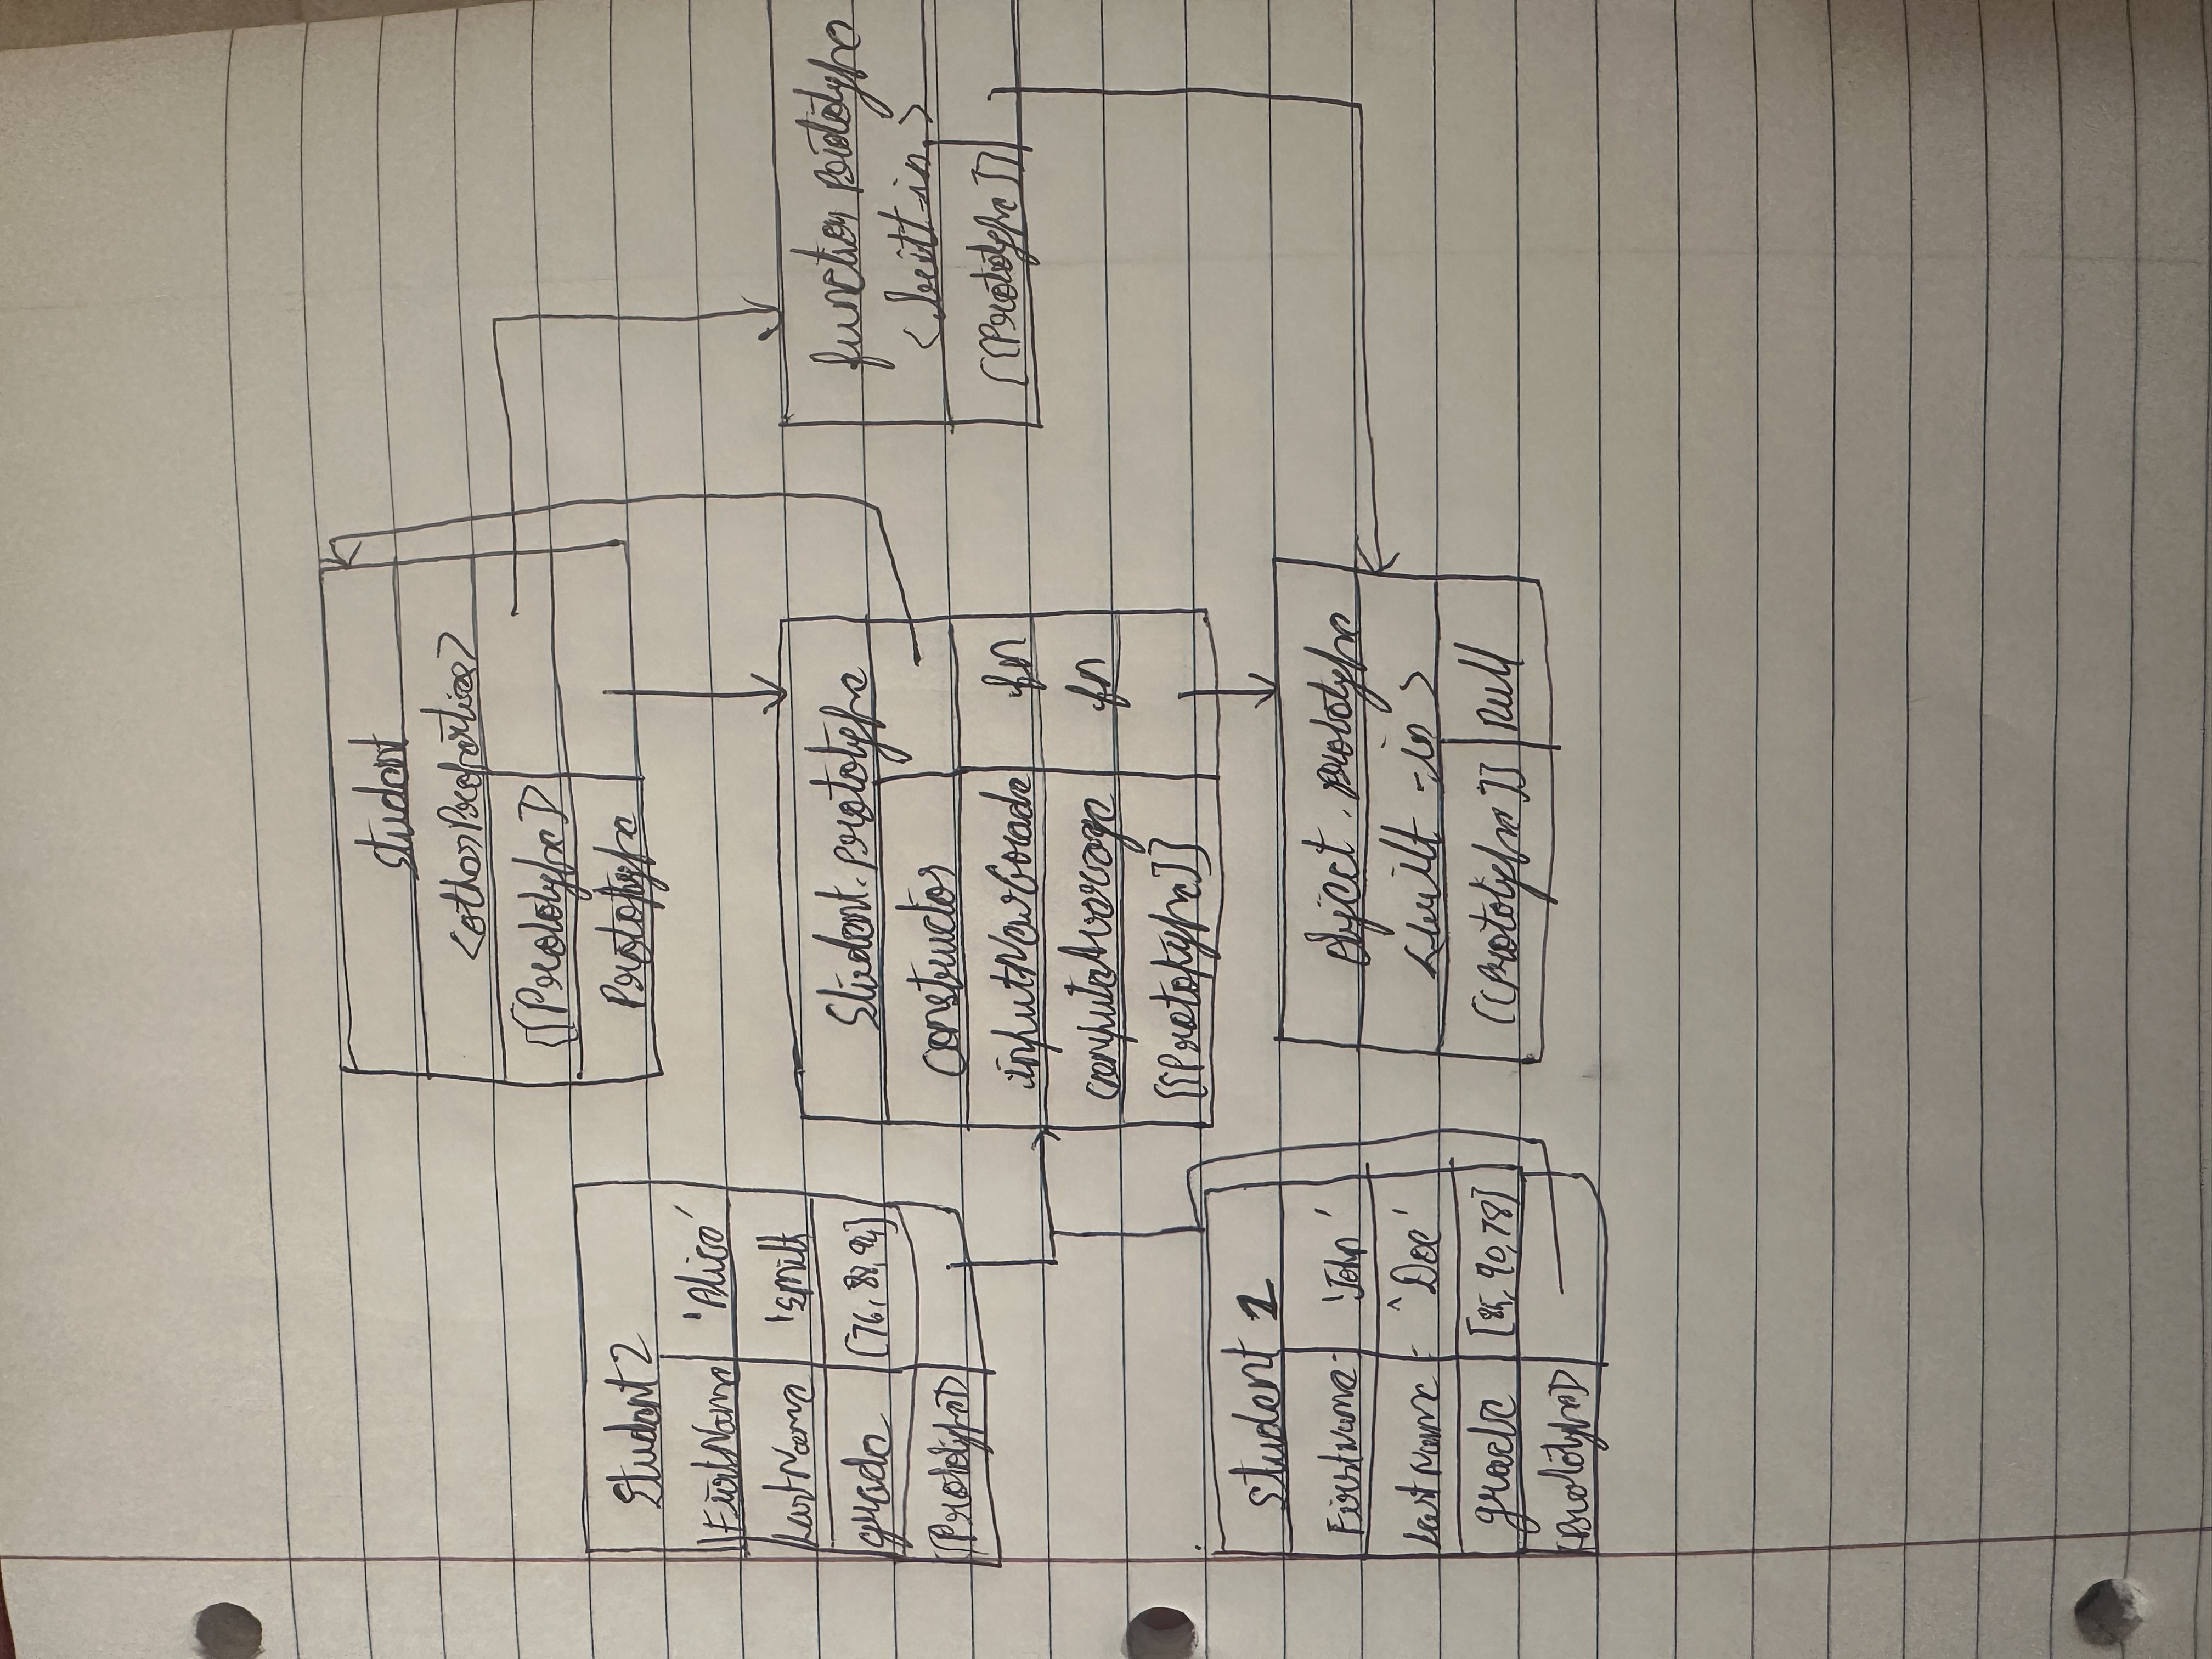 student
<otherProperties>
[[Prototype]]
Prototype
Student 2
FirstName 'Alice'
LastName 'Smith
grade [76, 88, 94]
[Prototype]]
Student.prototype
constructor
inputNewGrade fn
computeAverage fn
[[Prototype]]
function prototype
<built-in>
[[Prototype]]
student 1
FirstName 'John'
LastName 'Doe'
grade [85, 90, 78]
[Prototype]]
object.prototype
<built-in>
[[Prototype]] null